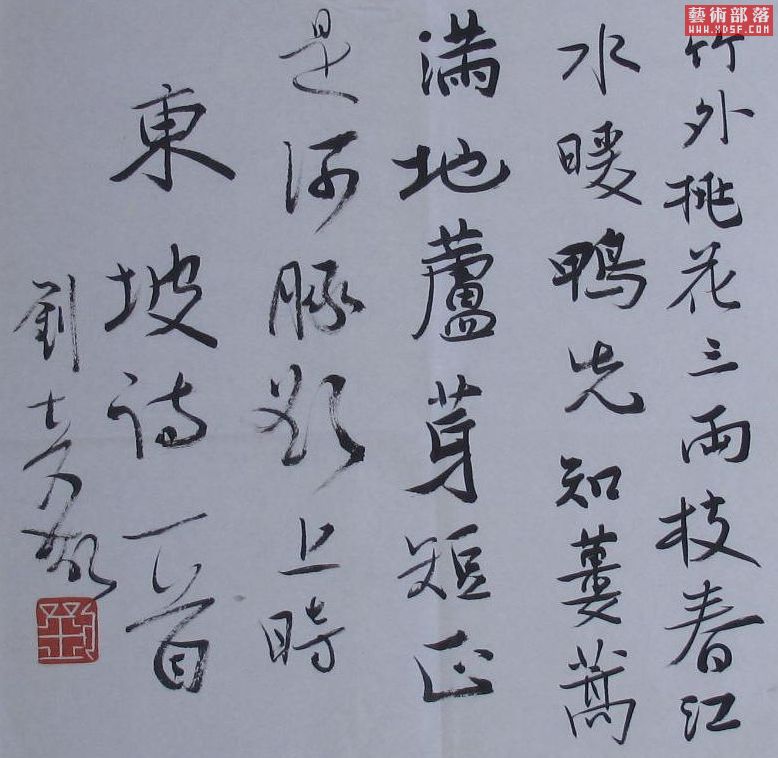 藝術部落
WWW.XDSF.COM
竹外桃花三兩枝春江
水暖鴨先知蔞蒿
滿地蘆芽短正
是河豚欲上時
東坡詩一首
劉